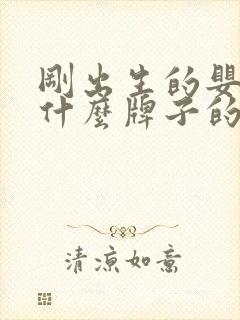 剛出生的嬰
什麼牌子的
清涼如意